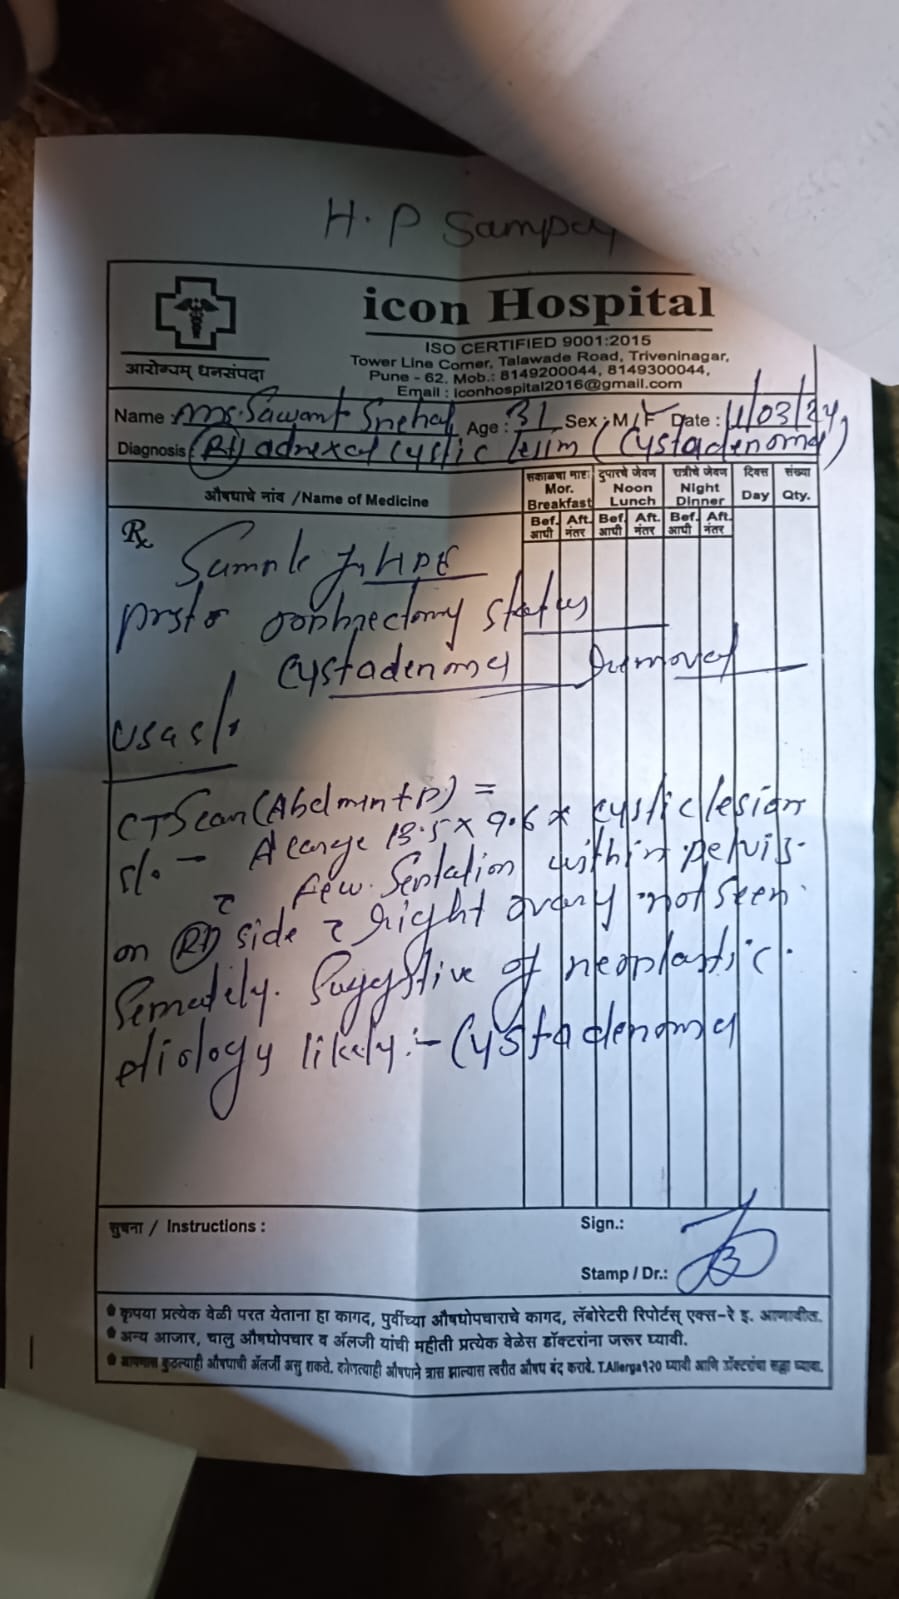 H. P Sampa
icon Hospital
ISO CERTIFIED 9001:2015
आरोग्यम् धनसंपदा
Tower Line Corner, Talawade Road, Triveninagar,
Pune - 62, Mob.: 8149200044, 8149300044,
Email : iconhospital2016@gmail.com
Name : Mrs. Sawant Snehal Age : 31 Sex : M / F Date : 11/03/24
Diagnosis (Rt) adnexal cystic (Cystadenoma)
औषधाचे नांव / Name of Medicine
सकाळचा नाष्टा Mor. Breakfast दुपारचे जेवण Noon Lunch रात्रीचे जेवण Night Dinner दिवस Day संख्या Qty.
Bef. आधी Aft. नंतर Bef. आधी Aft. नंतर Bef. आधी Aft. नंतर
Rx
Sample HPE
oophrectomy status
Cystadenoma removed
USG S/o
CT Scan (Abdmen + P) =
S/o. - A large 13.5 x 9.6 x cystic lesion
few within pelvis.
on (Rt) side right ovary not seen
Suggestive of neoplastic.
etiology likely :- Cystadenoma
सुचना / Instructions :
Sign.:
Stamp / Dr.:
कृपया प्रत्येक वेळी परत येताना हा कागद, पुर्वीच्या औषधोपचाराचे कागद, लॅबोरेटरी रिपोर्टस् एक्स-रे इ. आणावीत.
अन्य आजार, चालु औषधोपचार व ॲलर्जी यांची महीती प्रत्येक वेळेस डॉक्टरांना जरूर घ्यावी.
आपणास कुठल्याही औषधाची ॲलर्जी असु शकते. कोणत्याही औषधाने त्रास झाल्यास त्वरीत औषध बंद करावे. T.Allerga१२० घ्यावी आणि डॉक्टरांचा सल्ला घ्यावा.